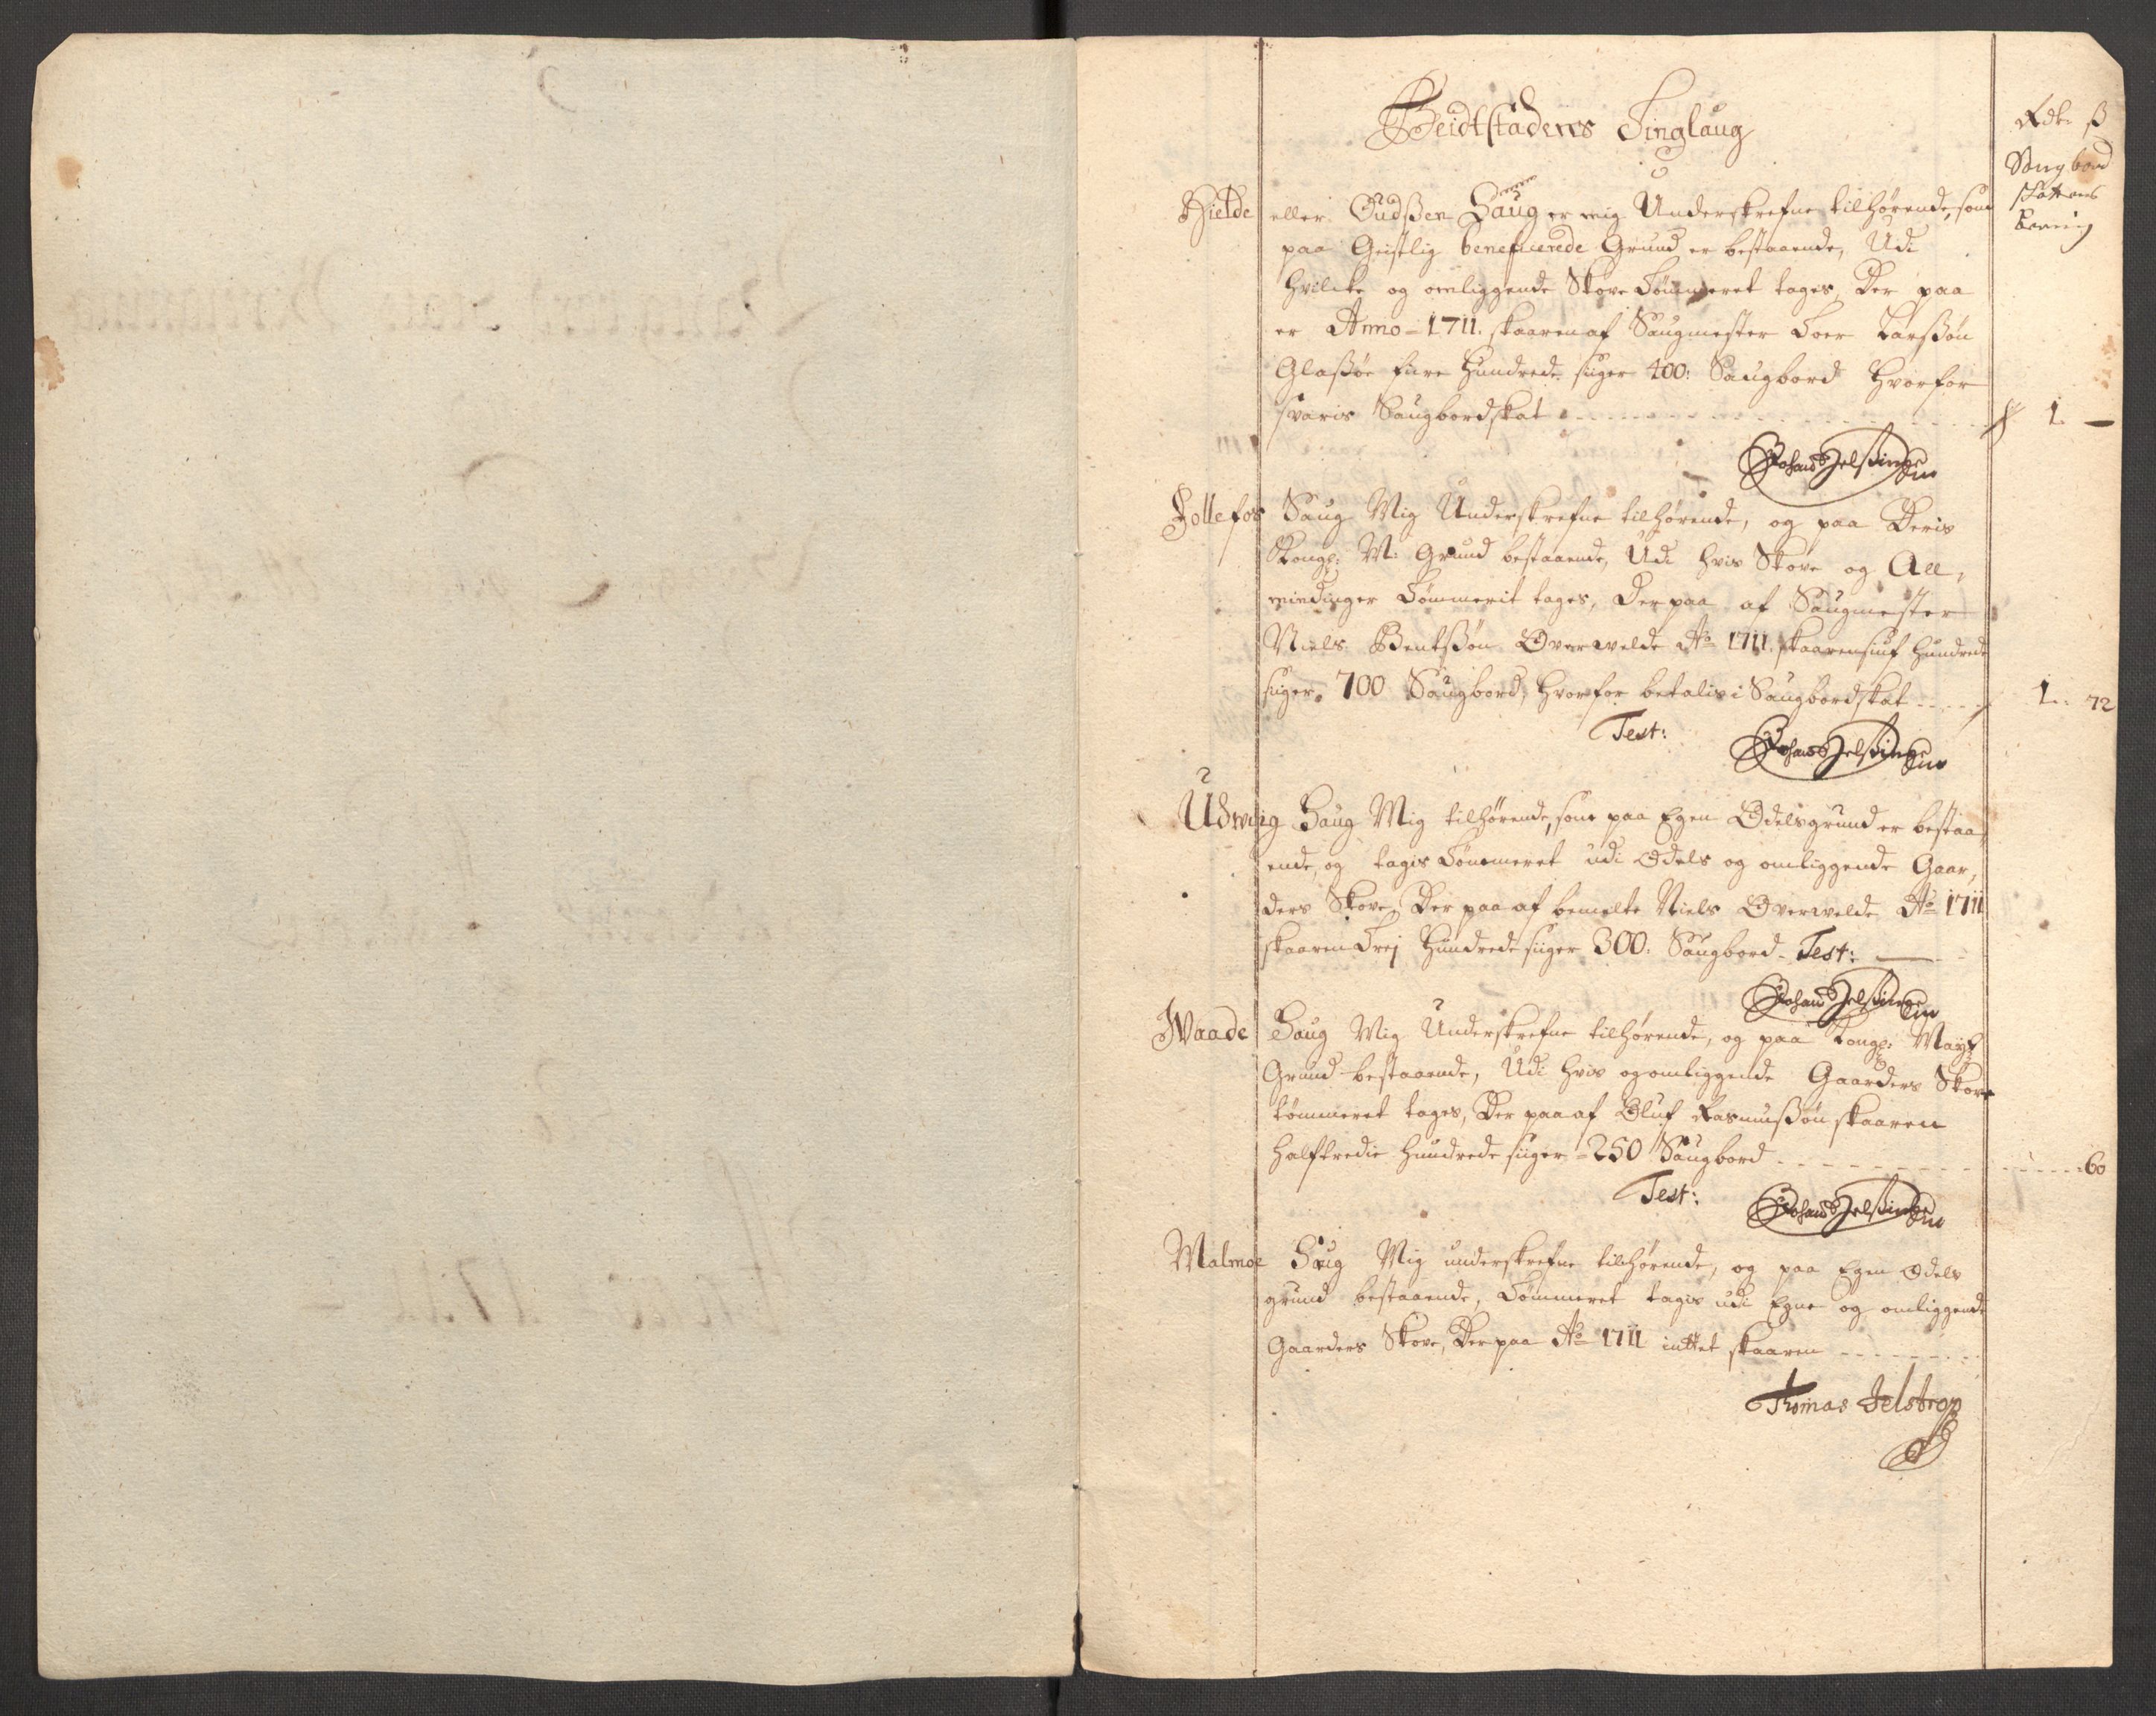 Beidtstadens Tinglaug
Rdr ß
Saugbord
skattens
Hielde eller Oudßen Saug er mig Underskrefne tilhørende, som
paa Geistlig beneficerede Grund er bestaaende, Udi
hvilcke og omliggende Skove Tømmeret tages, Der paa
er Anno 1711. skaaren af Saugmester Toer Larßøn
Glaßøe fiire Hundrede siger 400: Saugbord Hvorfor
svaris Saugbordskat 1 —
Follefos Saug Mig Underskrefne tilhørende, og paa Deris
Kongl: M: Grund bestaaende, Udi hvis Skove og All,
mindinger Tømmerit tages, Der paa af Saugmester
Niels Bentßøn Overwelde Ao 1711. skaaren siuf Hundrede
siger 700 Saugbord, Hvorfor betalis i Saugbordskat 1. 72
Test:
Udwiig Saug Mig tilhørende, som paa Egen Odelsgrund er bestaa,
ende, og tagis Tømmeret udi Odels og omliggende Gaar,
ders Skove, Der paa af bemelte Niels Overwelde Ao 1711
skaaren Trej Hundrede siiger 300: Saugbord - Test:
Waade Saug Mig Underskrefne tilhørende, og paa Kongl: Mayts
Grund bestaaende, Udi hvis og omliggende Gaarders Skove
tømmeret tages, Der paa af Oluf Rasmußøn skaaren
halftredie Hundrede siiger - 250 Saugbord 60
Test:
Malmoe Saug Mig underskrefne tilhørende, og paa Egen Odels
grund bestaaende, Tømmeret tagis udi Egne og omliggende
Gaarders Skove, Der paa Ao 1711 inttet skaaren
Thomas Jelstrop